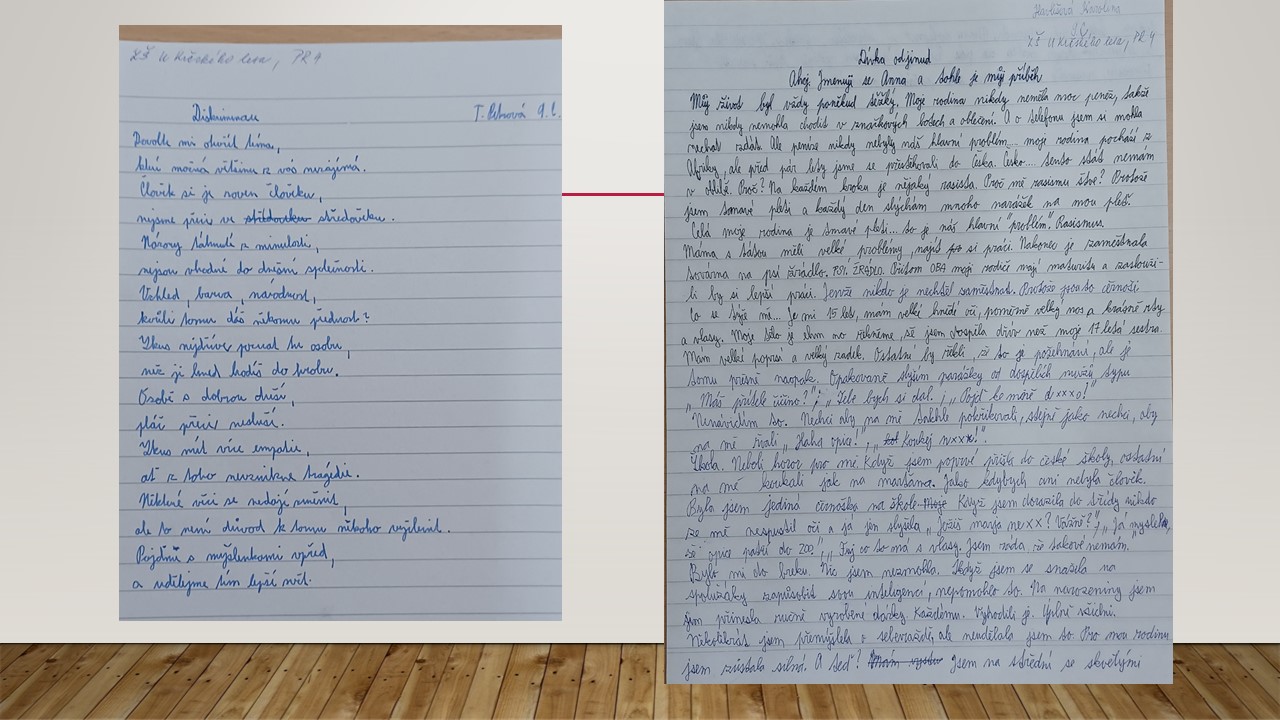 ZŠ U Krčského lesa, PR 4
Diskriminace
T. Petrová 9.C.
Dovolte mi otevřít téma,
které možná většinu z vás nezajímá.
Člověk si je roven člověku,
nejsme přece ve středověku středověku.
Názory táhnoucí z minulosti,
nejsou vhodné do dnešní společnosti.
Vzhled, barva, národnost,
kvůli tomu dáš někomu přednost?
Zkus nejdříve poznat tu osobu,
než ji hned hodíš do hrobu.
Osobě s dobrou duší,
pláč přece nesluší.
Zkus mít více empatie,
ať z toho nevznikne tragédie.
Některé věci se nedají změnit,
ale to není důvod k tomu někoho vyčlenit.
Pojďmě s myšlenkami vpřed,
a udělejme tím lepší svět.
Karolína
9.C
ZŠ U Krčského lesa, PR 4
Dívka odjinud
Ahoj. Jmenuji se Anna a tohle je můj příběh
Můj život byl vždy poněkud těžký. Moje rodina nikdy neměla moc peněz, takže
jsem nikdy nemohla chodit v značkových botách a oblečení. A o telefonu jsem si mohla
nechat zdát. Ale peníze nikdy nebyly náš hlavní problém... moje rodina pochází z
Afriky, ale před pár lety jsme se přestěhovali do Česka. Česko... tento stát nemám
v oblibě. Proč? Na každém kroku je nějaký rasista. Proč mě rasismu štve? Protože
jsem tmavé pleti a každý den slýchám mnoho narážek na mou pleť.
Celá moje rodina je tmavé pleti... to je náš hlavní "problém". Rasismus.
Máma s tátou měli velké problémy najít po si práci. Nakonec je zaměstnala
továrna na psí žrádlo. PSÍ ŽRÁDLO. Přitom OBA moji rodiče mají maturitu a zaslouži-
li by si lepší práci. Jenže nikdo je nechtěl zaměstnat. Protože jsou to černoši
Co se týče mě... Je mi 15 let, mám velké hnědé oči, poměrně velký nos a krásné rty
a vlasy. Moje tělo je ehm no řekněme, že jsem dospěla dřív než moje 17letá sestra.
Mám velké poprsí a velký zadek. Ostatní by řekli, že to je požehnání, ale je
tomu přesně naopak. Opakovaně slyším narážky od dospělých mužů typu
„Máš přítele číčino?", „Tebe bych si dal.", „Pojď ke mě dxxxo!"
Nenávidím to. Nechci aby na mě takhle pokřikovali, stejně jako nechci, aby
na mě řvali „Haha opice!", „ Koukej nxxx!".
Škola. Neboli horor pro mě. Když jsem poprvé přišla do české školy, ostatní
na mě koukali jak na marťana. Jako kdybych ani nebyla člověk.
Byla jsem jediná černoška na škole Moje Když jsem dorazila do třídy nikdo
ze mě nespustil oči a já jen slyšela „Ježiš marja nexx? Vážně?", „Já myslela,
že opice patří do ZOO", „Fuj co to má s vlasy. Jsem ráda, že takové nemám."
Bylo mi do breku. Nic jsem nezmohla. I když jsem se snažila na
spolužáky zapůsobit svou inteligencí, nepomohlo to. Na narozeniny jsem
jim přinesla ručně vyrobené dárky. Každému. Vyhodili je. Úplně všichni.
Několikrát jsem přemýšlela o sebevraždě, ale neudělala jsem to. Pro mou rodinu
jsem zůstala silná. A teď? Mám Jsem na střední se skvělými